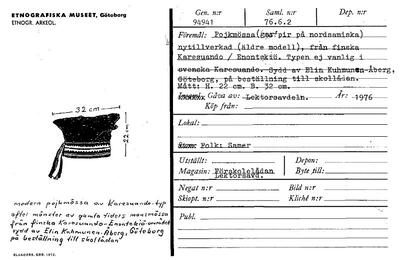 ETNOGRAFISKA MUSEET, Göteborg
ETNOGR. ARKEOL.
32 cm
22 cm
modern pojkmössa av Karesuando-typ
efter mönster av gamla tiders mansmössa
från finska Karesuando-Enontekiö-området
sydd av Elin Kuhmunen-Åberg, Göteborg
på beställning till skollådan
ELANDERS, GBG. 1972.
Gen. n:r Saml. n:r Dep. n:r
94941 76.6.2
Föremål: Pojkmössa på nordsamiska)
nytillverkad (äldre modell), från finska
Karesuando / Enontekiö. Typen ej vanlig i
svenska Karesuando. Sydd av Elin Kuhmunen-Åberg,
Göteborg, på beställning till skollådan.
Mått: H. 22 cm. B. 32 cm.
Gåva av: Lektorsavdeln. År: 1976
Köp från:
Lokal:
Folk: Samer
Utställt: Depon:
Magasin: Förskolelådan Byte till:
Lektorsavd.
Negat n:r Bild n:r
Skiopt. n:r Kliché n:r
Publ.